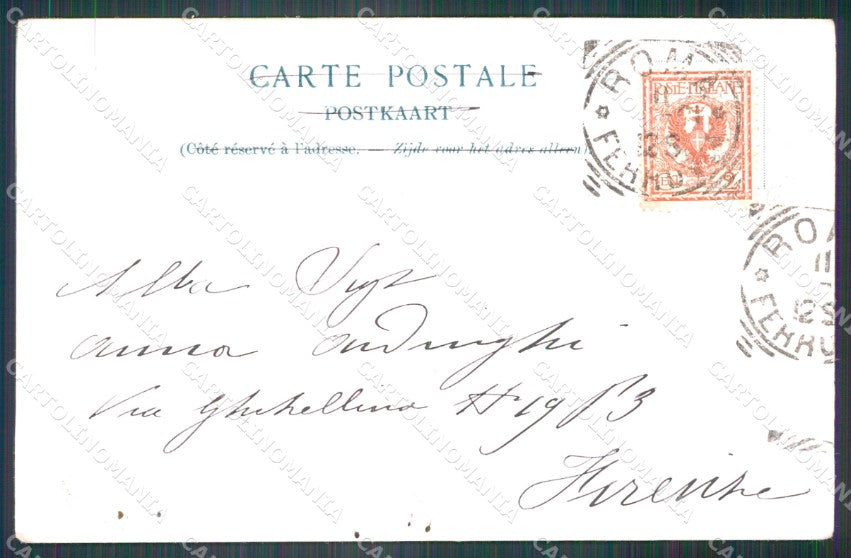 CARTE POSTALE
POSTKAART
(Côté réservé à l'adresse. — Zijde voor het adres alleen)
POSTE ITALIANE
2
ROMA
FERRO
ROMA
FERRO
Alla
anna
Via Ghibellina N 19 P3
Firenze
CARTOLINOMANIA